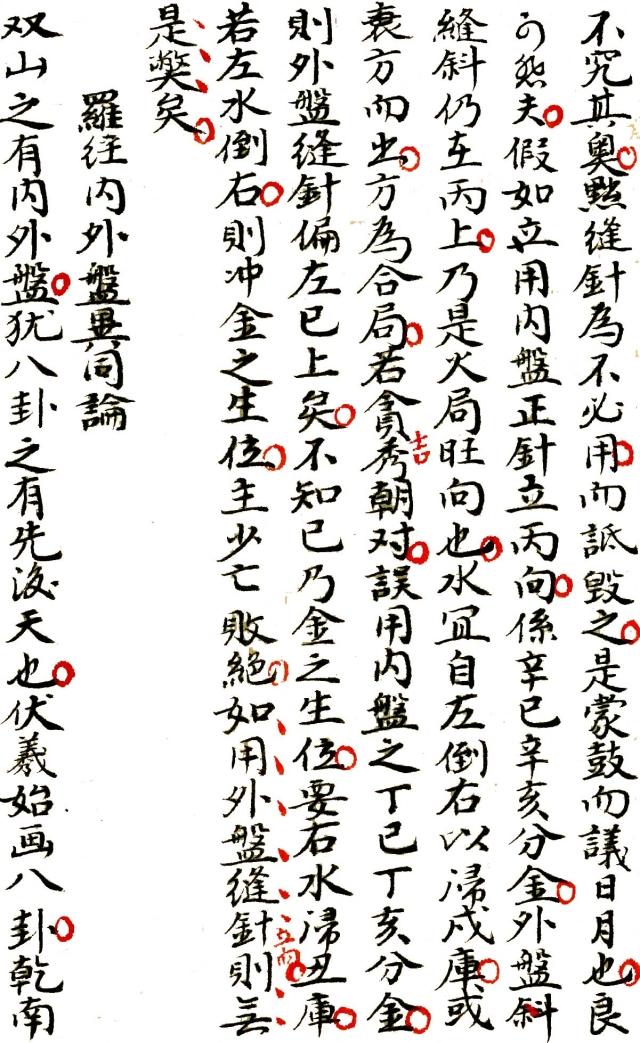 不究其奧黙縫針為不必用而詆毀之是蒙鼓而議日月也良
可慾夫假如立用内盤正針立丙向係辛巳辛亥分金外盤斜
縫斜仍在丙上乃是火局旺向也水冝自左倒右以㱕戍庫或
衰方而出方為合局若貪秀朝对誤用内盤之丁巳丁亥分金
吉
則外盤縫針偏左巳上矣不知巳乃金之生位要右水㱕丑庫
若左水倒右則冲金之生位主少亡敗絕如用外盤縫針則無
立向
是獘矣
羅経内外盤異同論
双山之有内外盤犹八卦之有先後天也伏羲始画八卦乾南